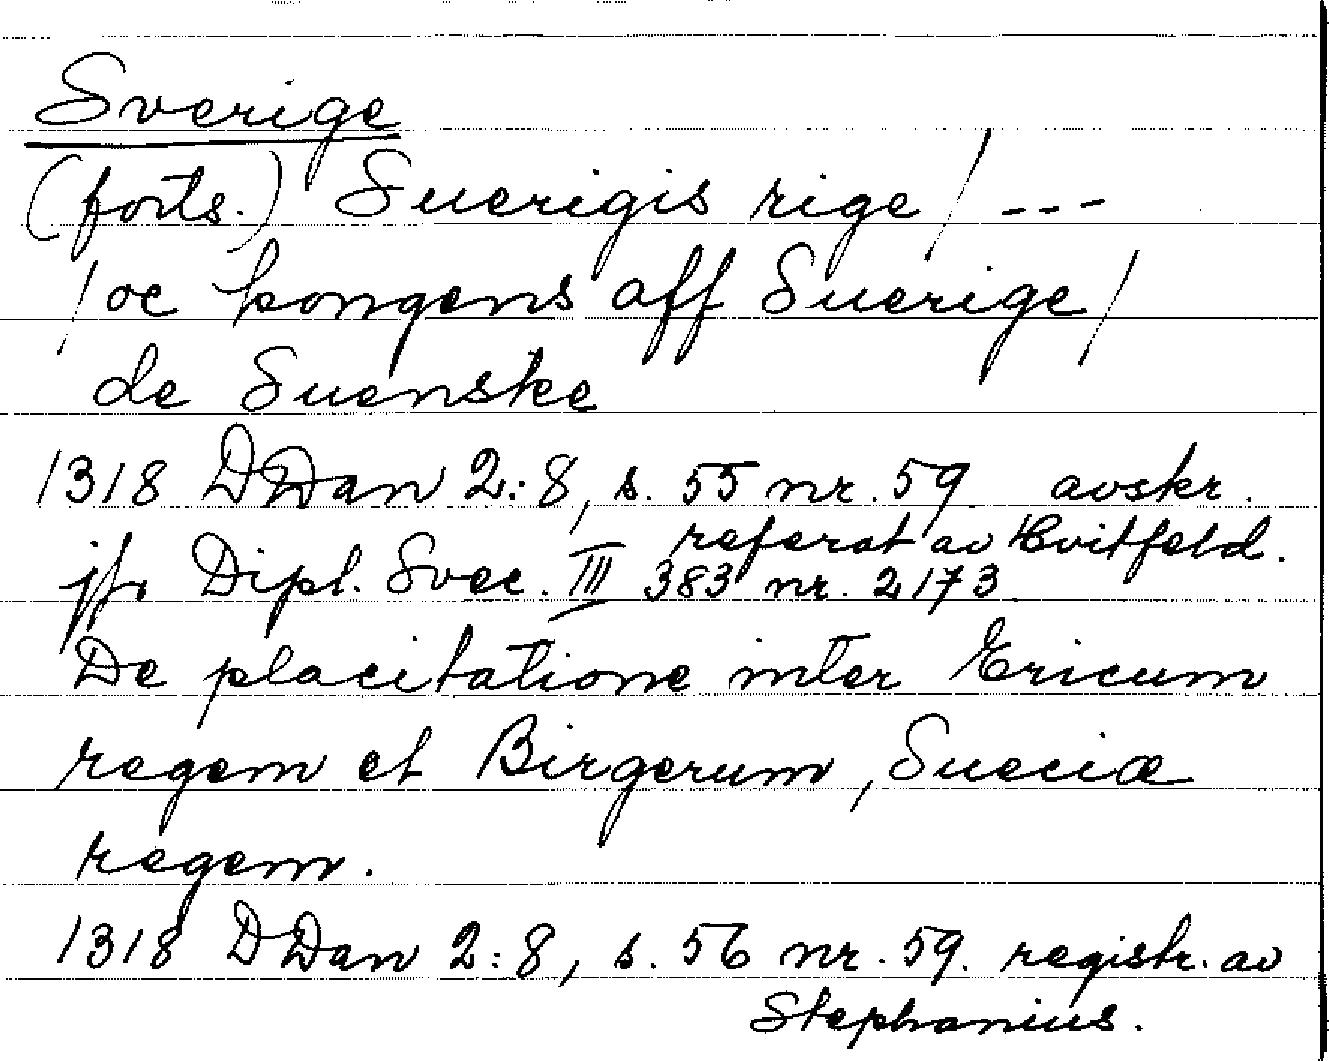 Sverige
(forts.) Suerigis rige / ---
/ oc kongens aff Suerige /
de Suenske
1318 DDan 2:8, s. 55 nr. 59 avskr.
referat av Hvitfeld.
jfr Dipl. Svec. III 383 nr. 2173
De placitatione inter Ericum
regem et Birgerum, Sueciæ
regem.
1318 DDan 2:8, s. 56 nr. 59. registr. av
Stephanius.